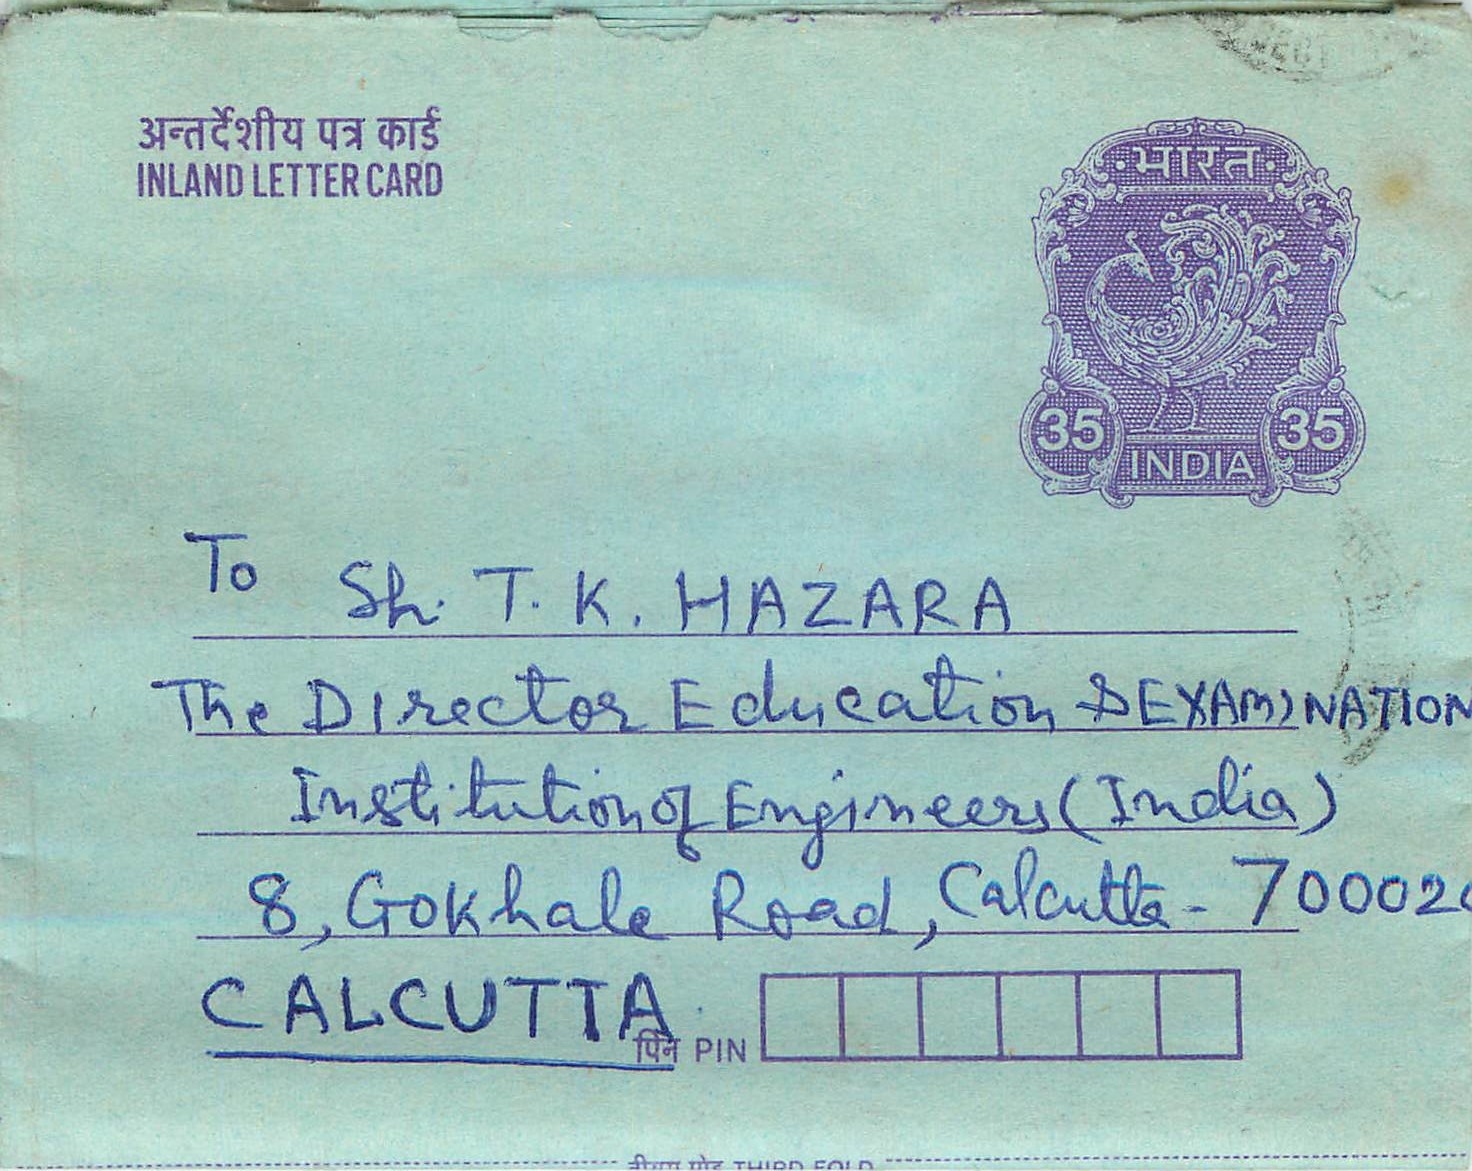 अन्तर्देशीय पत्र कार्ड
INLAND LETTER CARD
भारत
35 35
INDIA
To Sh. T. K. HAZARA
The Director Education & EXAMINATION
Institution of Engineers (India)
8, Gokhale Road, Calcutta - 70002
CALCUTTA
पिन PIN
THIRD FOLD